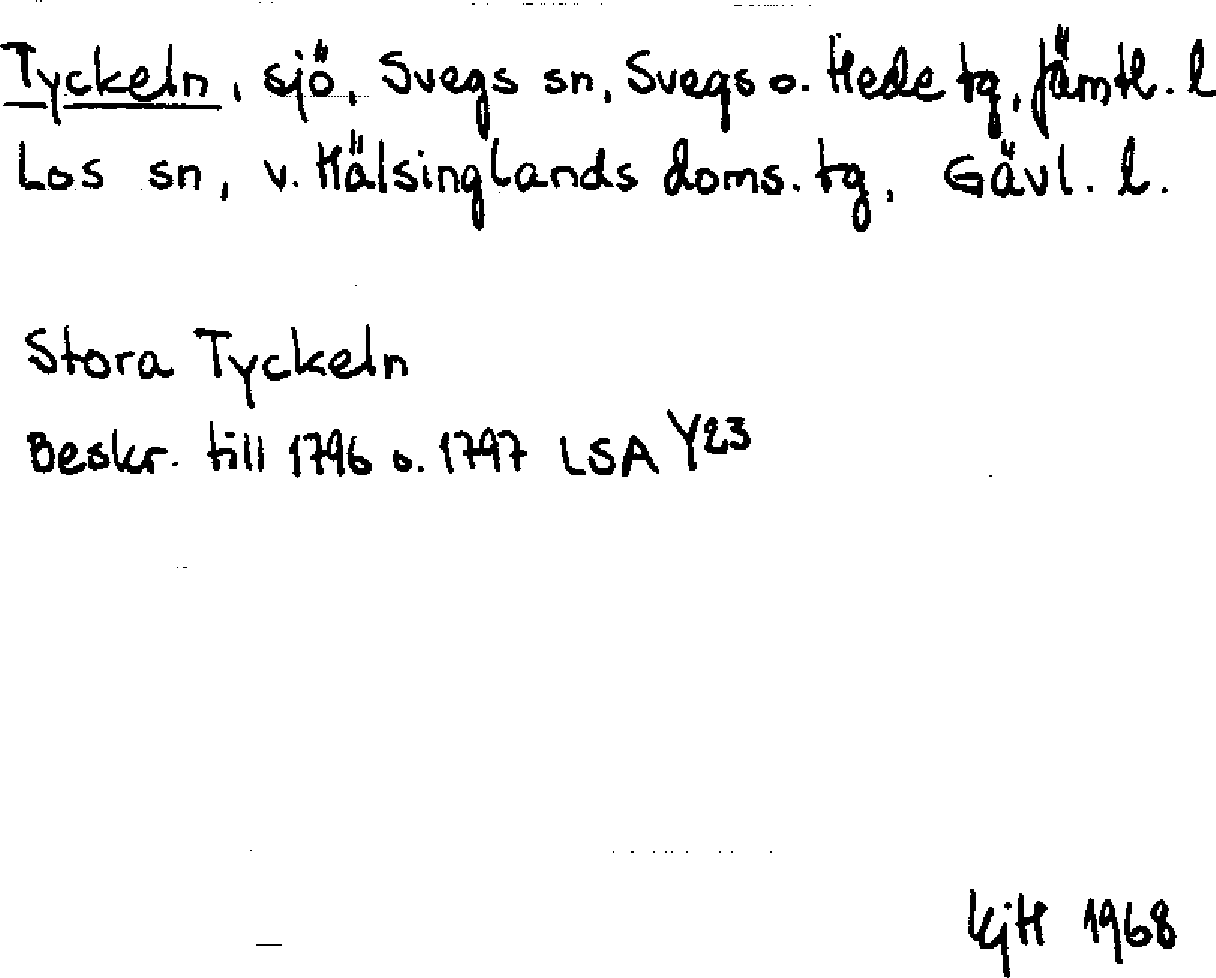 Tyckeln, sjö, Svegs sn, Svegs o. Hede tg, Jämtl. l
Los sn, v. Hälsinglands doms. tg, Gävl. l.
Stora Tyckeln
Beskr. till 1796 o. 1797 LSA Y23
KjH 1968